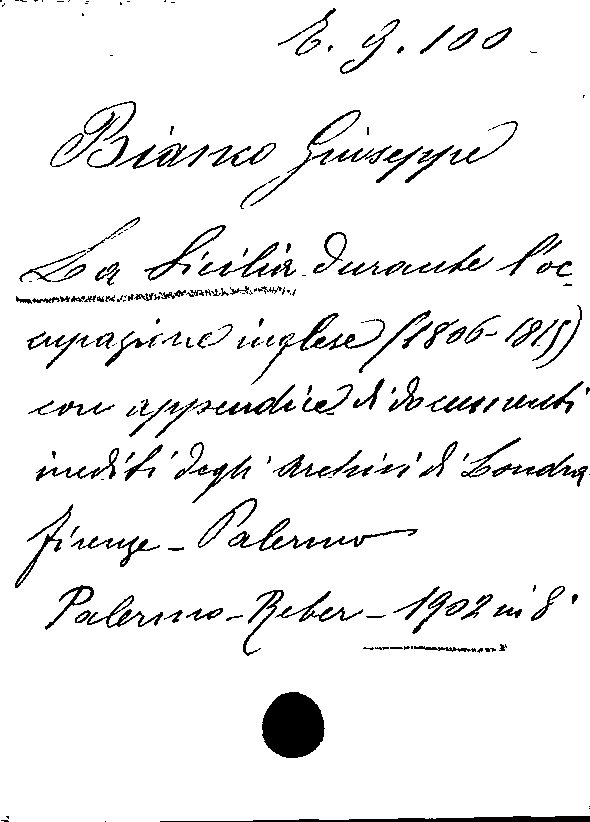 E. G. 100
Bianco Giuseppe
La Sicilia durante l'oc-
cupazione inglese (1806-1815)
con appendice di documenti
inediti degli Archivi di Londra
Firenze - Palermo
Palermo - Reber - 1902 in 8°